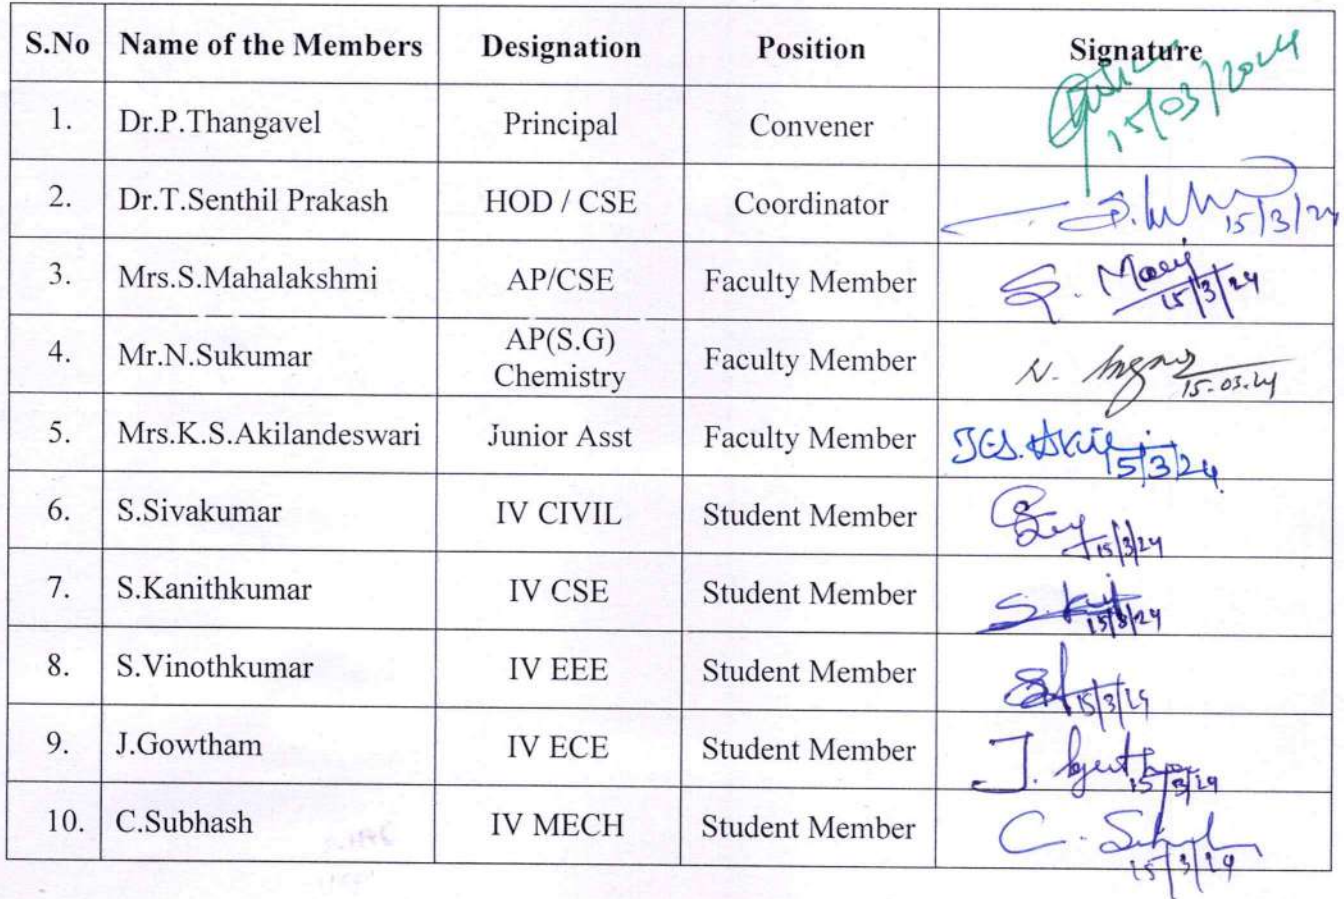 S.No Name of the Members Designation Position Signature
1. Dr.P.Thangavel Principal Convener 15/03/2024
2. Dr.T.Senthil Prakash HOD / CSE Coordinator 15/3/24
3. Mrs.S.Mahalakshmi AP/CSE Faculty Member S. 15/3/24
4. Mr.N.Sukumar AP(S.G) Chemistry Faculty Member N. 15.03.24
5. Mrs.K.S.Akilandeswari Junior Asst Faculty Member 15/3/24
6. S.Sivakumar IV CIVIL Student Member 15/3/24
7. S.Kanithkumar IV CSE Student Member S. 15/3/24
8. S.Vinothkumar IV EEE Student Member 15/3/24
9. J.Gowtham IV ECE Student Member J. 15/3/24
10. C.Subhash IV MECH Student Member C. 15/3/24